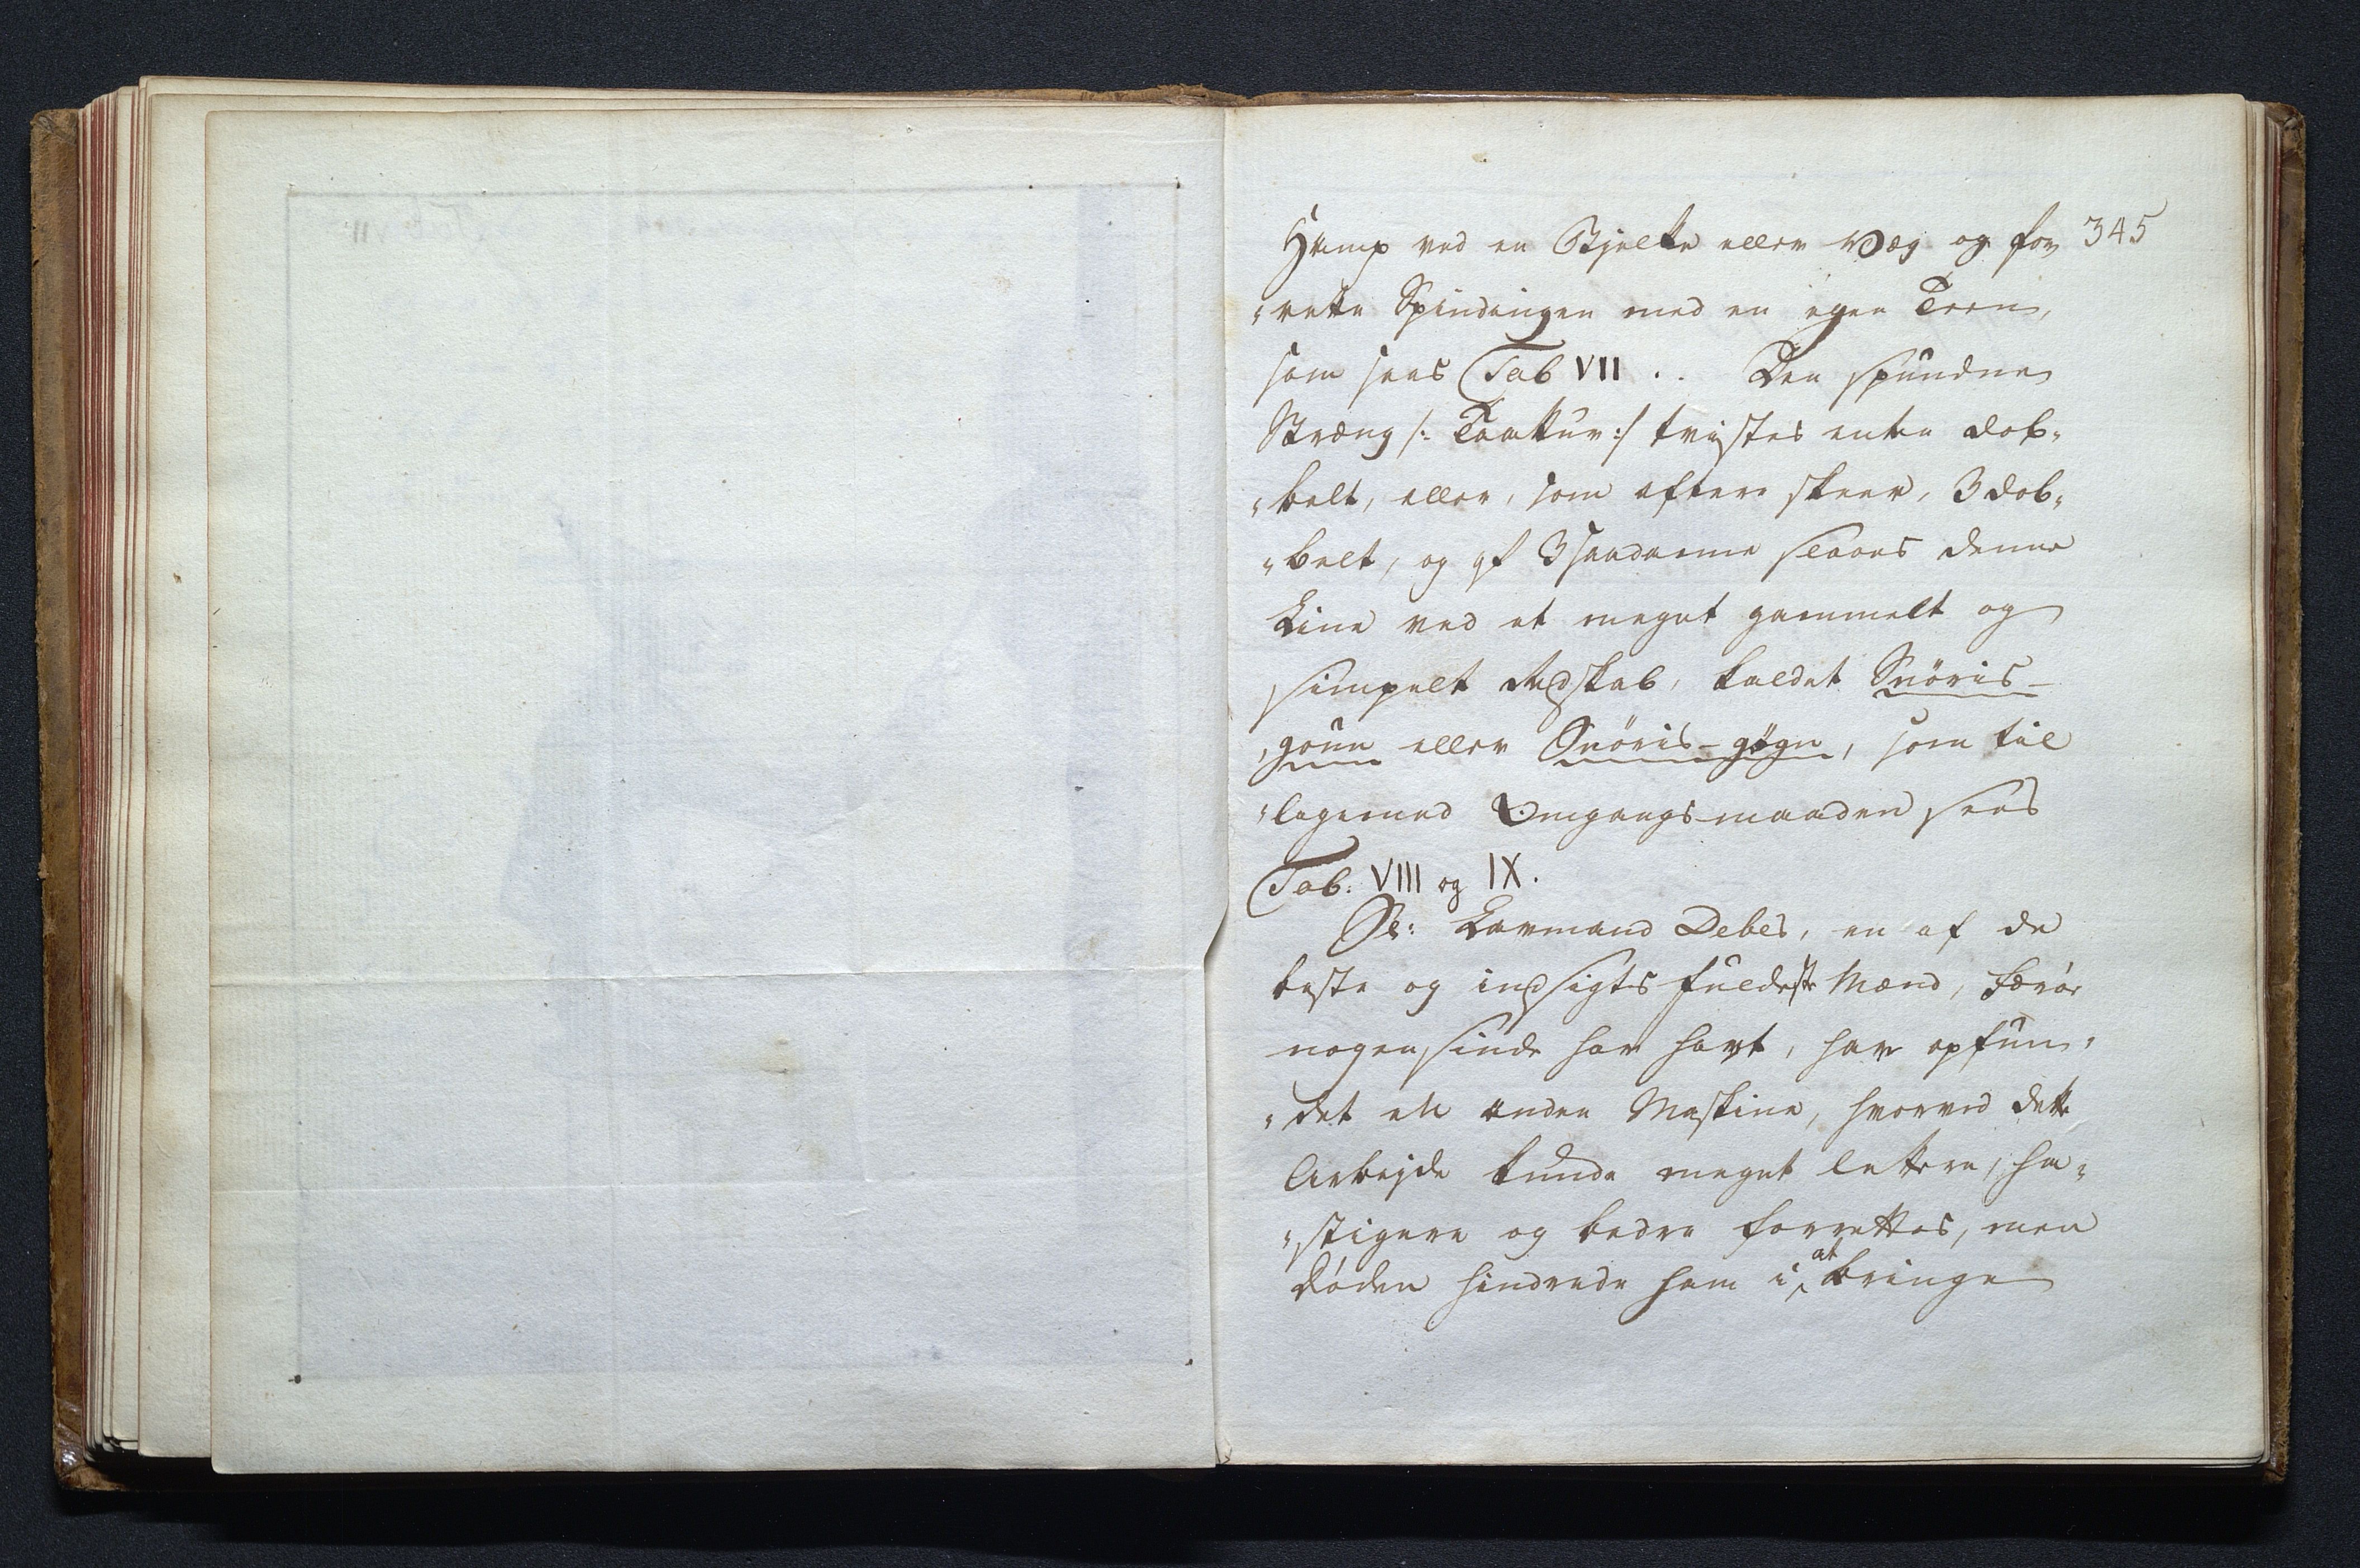 345
Hamp ved en Bjelke eller Væg og for
"rette Spindingen med en egen Teen,
som sees Tab VII . . Den spundne
Stræng /: Taattur :/ tvistes enten dob„
„belt, eller, som oftere skeer, 3 dob„
„belt, og af 3 saadanne slaaes denne
Line ved et meget gammelt og
simpelt Redskab, kaldet Snöris-
„goun eller Snöris-gøgn, som til
„ligemed Omgangsmaaden sees
Tab: VIII og IX.
Sl: Lavmand Debes, en af de
beste og indsigtsfuldeste Mænd, Færøe
nogensinde har havt, har opfun„
„det en anden Maskine, hvorved dette
Arbejde kunde meget lettere, ha„
„stigere og bedre forrettes, men
Døden hindrede ham i at bringe